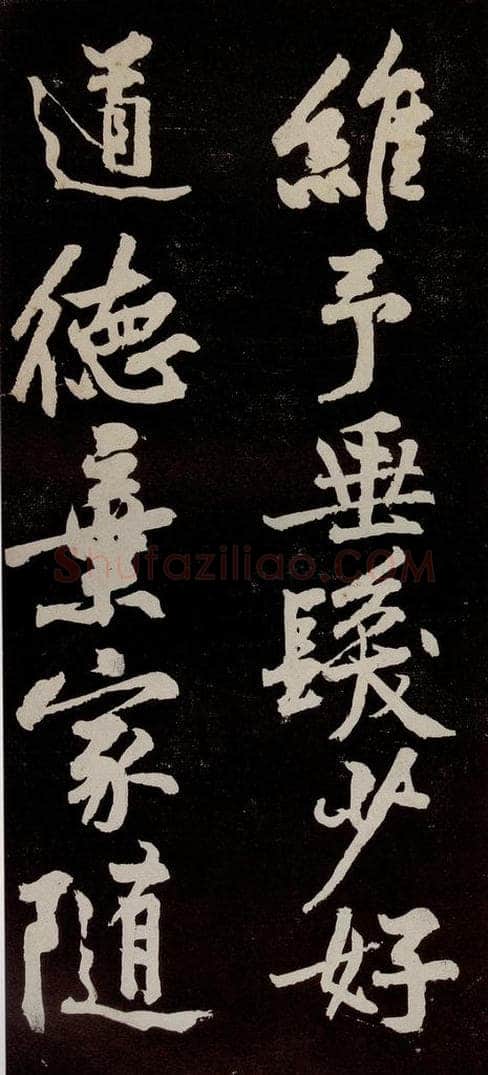 維予垂髮少好
道德棄家隨
Shufaziliao.COM